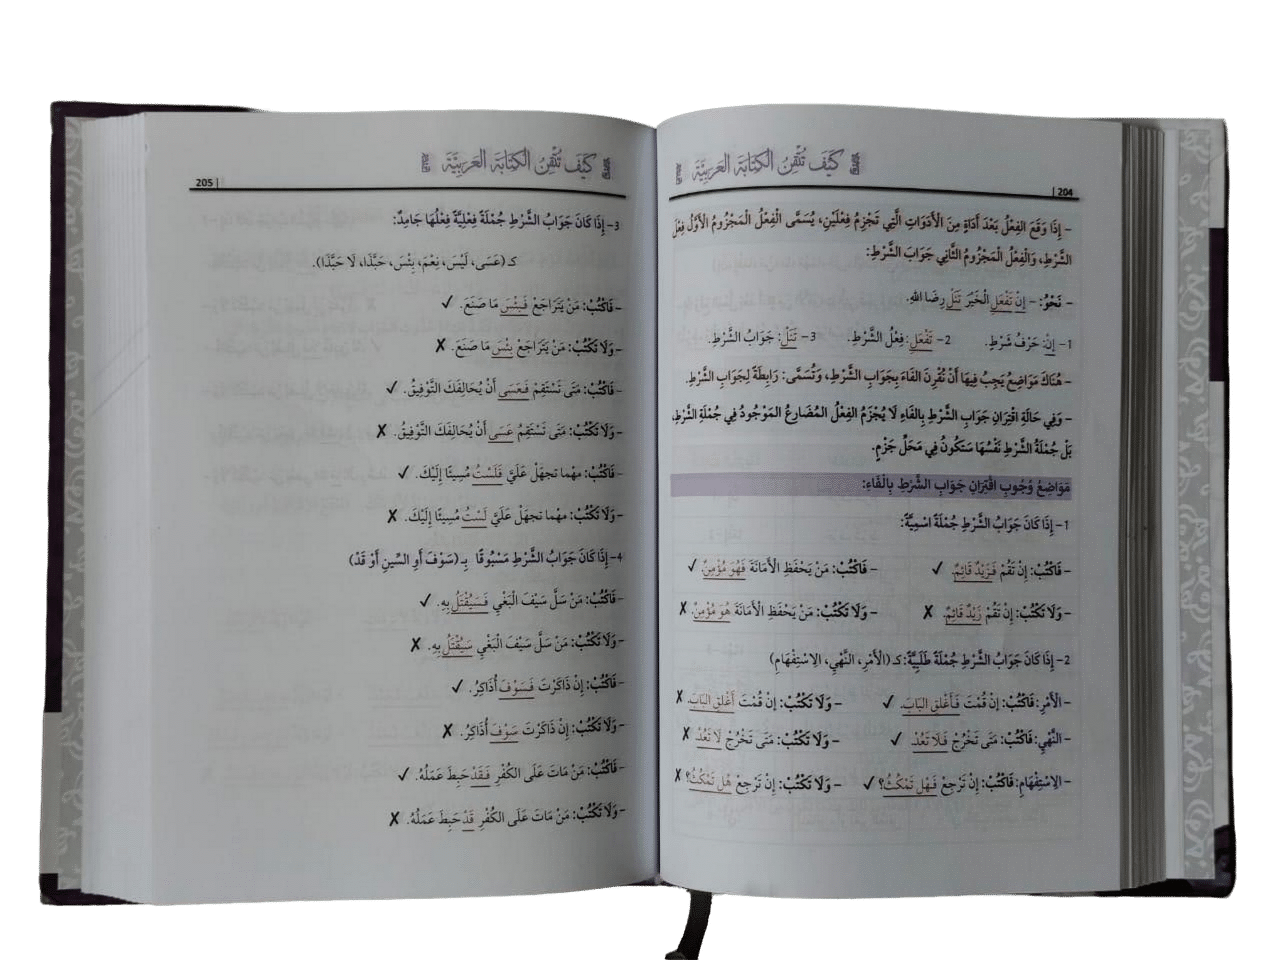 كَيْفَ تُتْقِنُ الْكِتَابَةَ الْعَرَبِيَّةَ
204 |
- إِذَا وَقَعَ الفِعْلُ بَعْدَ أَدَاةٍ مِنَ الأَدَوَاتِ الَّتِي تَجْزِمُ فِعْلَيْنِ، يُسَمَّى الْفِعْلُ الْمَجْزُومُ الأَوَّلُ فِعْلَ
الشَّرْطِ، وَالْفِعْلُ الْمَجْزُومُ الثَّانِي جَوَابَ الشَّرْطِ:
- نَحْوُ: - إِنْ تَفْعَلِ الْخَيْرَ تَنَلْ رِضَا اللهِ.
1- إِنْ: حَرْفُ شَرْطٍ. 2- تَفْعَلِ: فِعْلُ الشَّرْطِ. 3- تَنَلْ: جَوَابُ الشَّرْطِ.
- هُنَاكَ مَوَاضِعُ يَجِبُ فِيهَا أَنْ تُقْرَنَ الفَاءُ بِجَوَابِ الشَّرْطِ، وَتُسَمَّى: رَابِطَةً لِجَوَابِ الشَّرْطِ.
- وَفِي حَالَةِ اقْتِرَانِ جَوَابِ الشَّرْطِ بِالْفَاءِ لَا يُجْزَمُ الْفِعْلُ الْمُضَارِعُ الْمَوْجُودُ فِي جُمْلَةِ الشَّرْطِ،
بَلْ جُمْلَةُ الشَّرْطِ نَفْسُهَا سَتَكُونُ فِي مَحَلِّ جَزْمٍ.
مَوَاضِعُ وُجُوبِ اقْتِرَانِ جَوَابِ الشَّرْطِ بِالْفَاءِ:
1- إِذَا كَانَ جَوَابُ الشَّرْطِ جُمْلَةً اسْمِيَّةً:
- فَاكْتُبْ: إِنْ تَقُمْ فَزَيْدٌ قَائِمٌ. ✓ - فَاكْتُبْ: مَنْ يَحْفَظِ الْأَمَانَةَ فَهُوَ مُؤْمِنٌ. ✓
- وَلَا تَكْتُبْ: إِنْ تَقُمْ زَيْدٌ قَائِمٌ. ✗ - وَلَا تَكْتُبْ: مَنْ يَحْفَظِ الْأَمَانَةَ هُوَ مُؤْمِنٌ. ✗
2- إِذَا كَانَ جَوَابُ الشَّرْطِ جُمْلَةً طَلَبِيَّةً: كـ (الأَمْرِ، النَّهْيِ، الِاسْتِفْهَامِ)
- الأَمْرِ: فَاكْتُبْ: إِنْ قُمْتَ فَأَغْلِقِ البَابَ. ✓ - وَلَا تَكْتُبْ: إِنْ قُمْتَ أَغْلِقِ البَابَ. ✗
- النَّهْيِ: فَاكْتُبْ: مَتَى تَخْرُجْ فَلَا تَعُدْ ✓ - وَلَا تَكْتُبْ: مَتَى تَخْرُجْ لَا تَعُدْ ✗
- الِاسْتِفْهَامِ: فَاكْتُبْ: إِنْ تَرْجِعْ فَهَلْ تَمْكُثُ؟ ✓ - وَلَا تَكْتُبْ: إِنْ تَرْجِعْ هَلْ تَمْكُثُ؟ ✗
كَيْفَ تُتْقِنُ الْكِتَابَةَ الْعَرَبِيَّةَ
205 |
3- إِذَا كَانَ جَوَابُ الشَّرْطِ جُمْلَةً فِعْلِيَّةً فِعْلُهَا جَامِدٌ:
كـ (عَسَى، لَيْسَ، نِعْمَ، بِئْسَ، حَبَّذَا، لَا حَبَّذَا).
- فَاكْتُبْ: مَنْ يَتَرَاجَعْ فَبِئْسَ مَا صَنَعَ. ✓
- وَلَا تَكْتُبْ: مَنْ يَتَرَاجَعْ بِئْسَ مَا صَنَعَ. ✗
- فَاكْتُبْ: مَتَى تَسْتَقِمْ فَعَسَى أَنْ يُحَالِفَكَ التَّوْفِيقُ. ✓
- وَلَا تَكْتُبْ: مَتَى تَسْتَقِمْ عَسَى أَنْ يُحَالِفَكَ التَّوْفِيقُ. ✗
- فَاكْتُبْ: مهْما تجهَلْ عَلَيَّ فَلَسْتُ مُسِيئًا إِلَيْكَ. ✓
- وَلَا تَكْتُبْ: مهْما تجهَلْ عَلَيَّ لَسْتُ مُسِيئًا إِلَيْكَ. ✗
4- إِذَا كَانَ جَوَابُ الشَّرْطِ مَسْبُوقًا بِـ (سَوْفَ أَوِ السِّينِ أَوْ قَدْ)
- فَاكْتُبْ: مَنْ سَلَّ سَيْفَ الْبَغْيِ فَسَيُقْتَلُ بِهِ. ✓
- وَلَا تَكْتُبْ: مَنْ سَلَّ سَيْفَ الْبَغْيِ سَيُقْتَلُ بِهِ. ✗
- فَاكْتُبْ: إِنْ ذَاكَرْتَ فَسَوْفَ أُذَاكِرُ. ✓
- وَلَا تَكْتُبْ: إِنْ ذَاكَرْتَ سَوْفَ أُذَاكِرُ. ✗
- فَاكْتُبْ: مَنْ مَاتَ عَلَى الكُفْرِ فَقَدْ حَبِطَ عَمَلُهُ. ✓
- وَلَا تَكْتُبْ: مَنْ مَاتَ عَلَى الكُفْرِ قَدْ حَبِطَ عَمَلُهُ. ✗